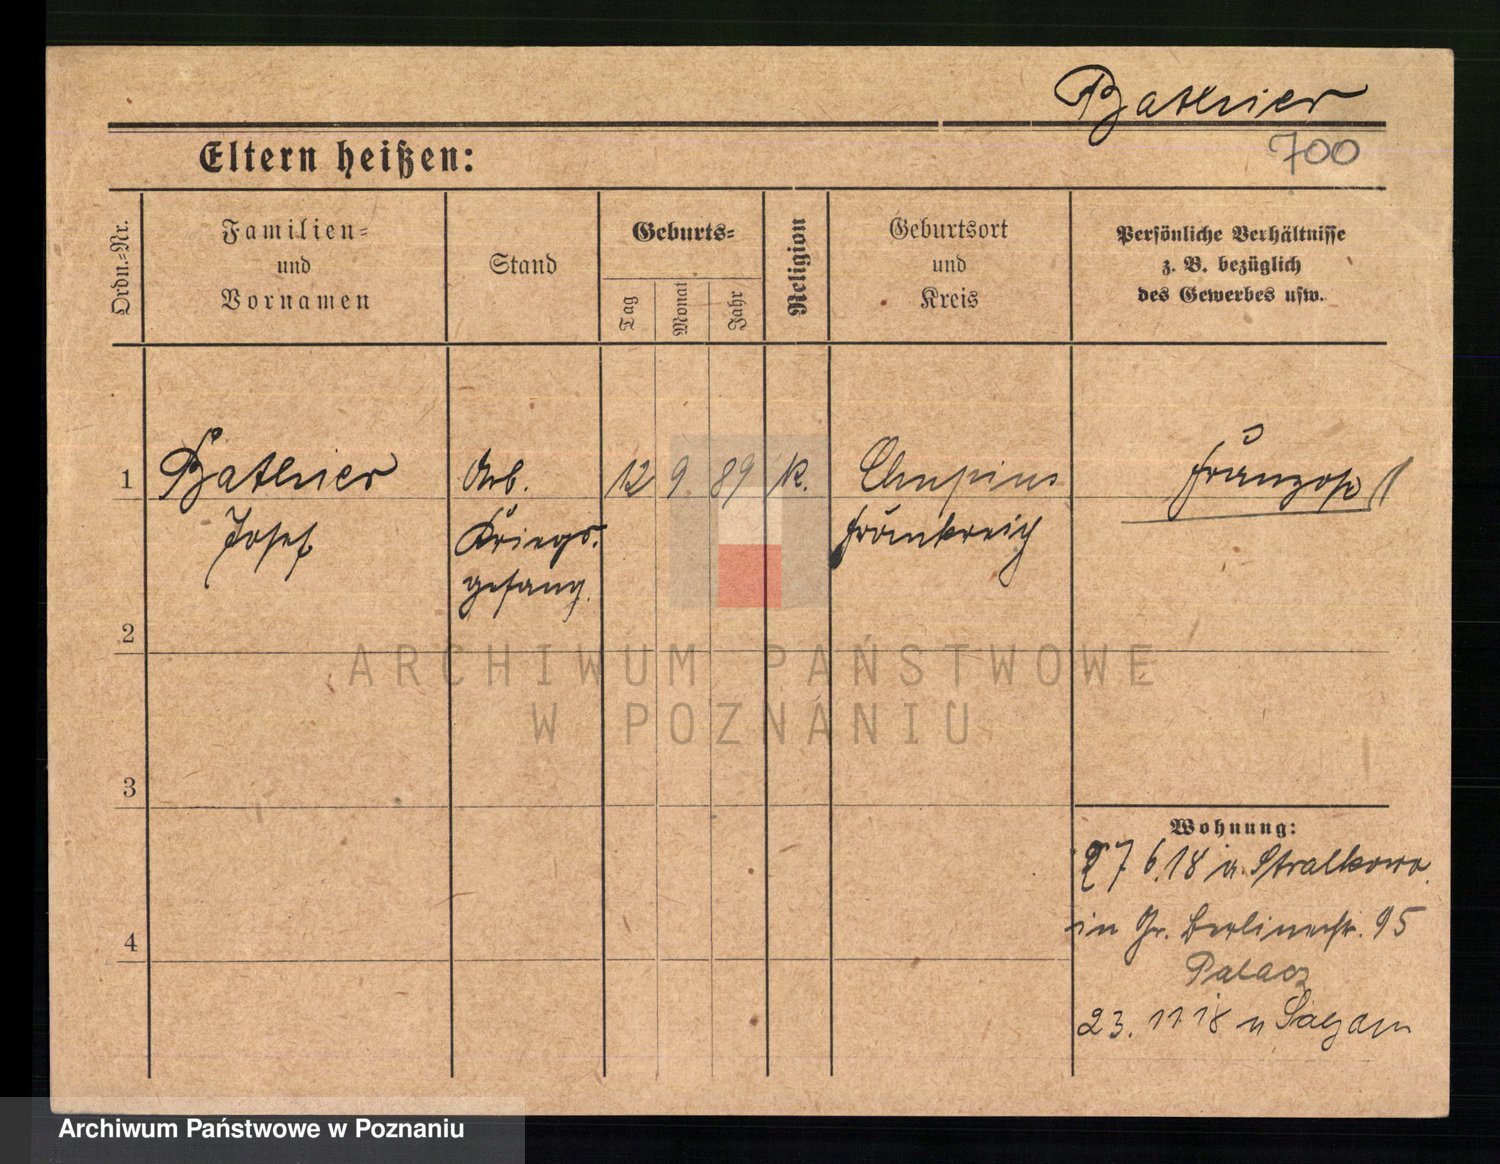 Bathier
700
Eltern heißen:
Ordn.-Nr.
Familien-
und
Vornamen
Stand
Geburts-
Tag
Monat
Jahr
Religion
Geburtsort
und
Kreis
Persönliche Verhältnisse
z. B. bezüglich
des Gewerbes usw.
1
Bathier
Josef
Arb.
Kriegs-
gefang.
12
9.
89
K.
Frankreich
Franzose
2
3
4
Wohnung:
27 6.18 v. Stralkowo
in Gr. Berlinerstr. 95
Palacz
23. 11 18 n Sagan
ARCHIWUM PAŃSTWOWE
W POZNANIU
Archiwum Państwowe w Poznaniu